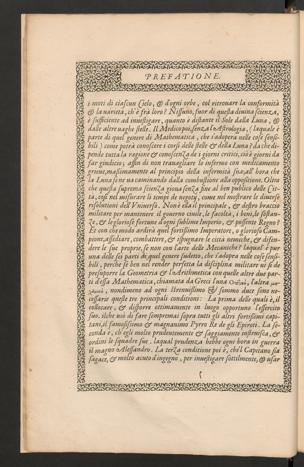 PREFATIONE.
i moti di ciascun Cielo, & d'ogni orbe, col ritrouare la conformità
& la uarietà, ch'è frà loro? Nissuno, fuor di questa diuina scienza,
è sufficiente ad inuestigare, quanto è distante il Sole dalla Luna, &
dalle altre uaghe stelle. Il Medico poi, senza l'Astrologia, (laquale è
parte di quel genere di Mathematica, che s'adopra nelle cose sensi-
bili) come potrà conoscere i corsi delle stelle & della Luna? da che di-
pende tutta la ragione & conoscenza de i giorni critici, cioè giorni da
far giudicio; affin di non trauagliare lo infermo con medicamento
graue, massimamente al principio della infermità sua, all'hora che
la Luna se ne ua caminando dalla combustione alla oppositione. Oltre
che questa suprema scienza gioua senza fine al ben publico delle Cit-
tà, così nel misurar il tempo
resolutioni dell'Vniuerso. Non è ella il principale, & destro braccio
militare per mantenere il gouerno ciuile, le facoltà, i beni, le sostan-
ze, & le gloriose fortune d'ogni sublime Imperio, & possente Regno?
Et con che modo ardirà quel fortissimo Imperatore, ò glorioso Cam-
pione, assediare, combattere, & espugnare le città nemiche, & difen-
dere le sue proprie, se non con l'arte delle Mecaniche? laqual' è pur
una delle sei parti di quel genere sudetto, che s'adopra nelle cose sensi-
bili, perche se ben nel render perfetta la disciplina militare ui si de
presuporre la Geometria & l'Arithmetica con quelle altre due par-
ti d'essa Mathematica, chiamata da Greci l'una
nondimeno ad ogni strenuissimo & sommo duce sono ne-
cessarie queste tre principali conditioni: La prima delle quali è, il
collocare, & disporre ottimamente in luogo opportuno l'essercito
suo. ilche uia di fare sempre mai sopra tutti gli altri fortissimi capi-
tani, il famosissimo & magnanimo Pyrro Rè de gli Epiroti. La se-
conda è, ch'egli molto prudentemente & saggiamente instruisca, &
ordini le squadre sue, laqual prudenza hebbe ogni hora in guerra
il magno Alessandro. La terza conditione poi è, che'l Capitano sia
sagace, & molto acuto d'ingegno, per inuestigare sottilmente, & usar